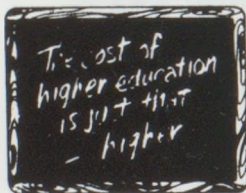 The cost of
higher education
is just that
- higher